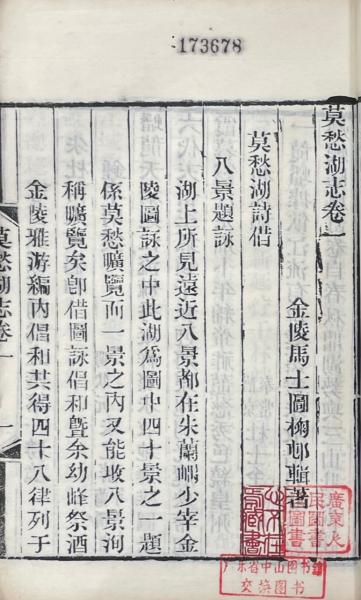 173678
莫愁湖志卷一
金陵馬士圖梅邨輯著
莫愁湖詩借
八景題詠
湖上所見遠近八景都在朱蘭嵎少宰金
陵圖詠之中此湖為圖中四十景之一題
係莫愁曠覽而一景之內又能收八景洵
稱曠覽矣卽借圖詠倡和曁余幼峰祭酒
金陵雅游編內倡和共得四十八律列于
莫愁湖志卷一
一
廣東人
民圖書
圖書
广东省中山图书館
交換图书